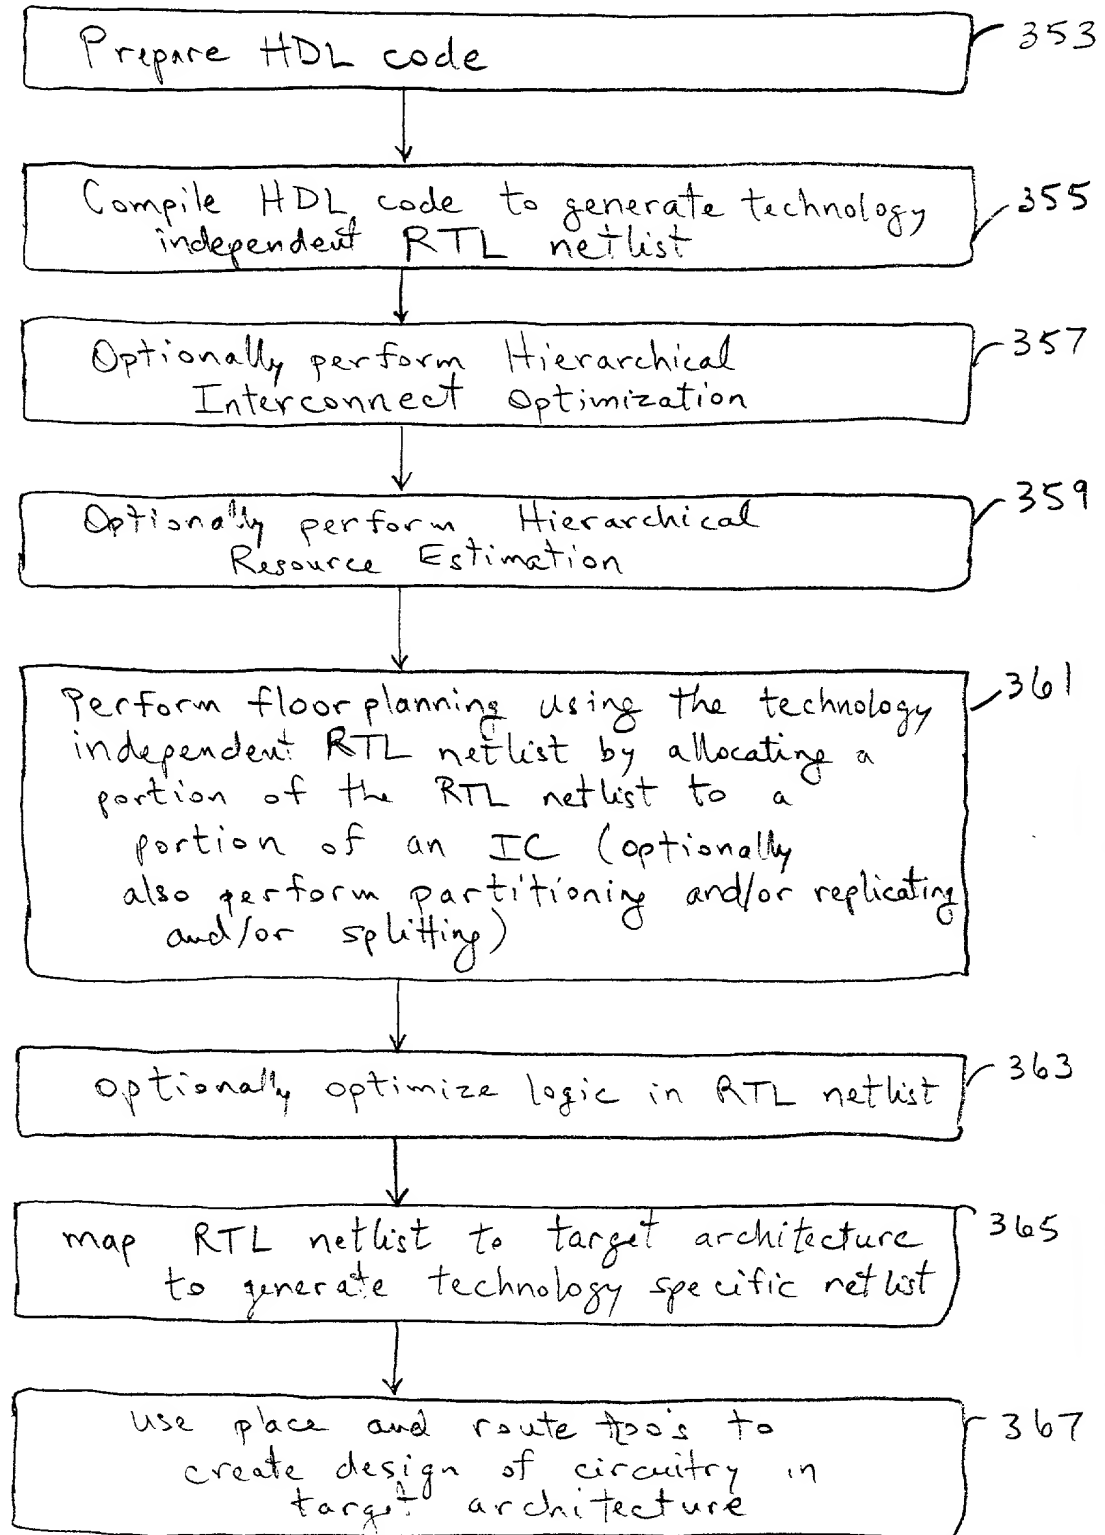 Prepare HDL code
353
Compile HDL code to generate technology
independent RTL netlist
355
Optionally perform Hierarchical
Interconnect Optimization
357
Optionally perform Hierarchical
Resource Estimation
359
Perform floor planning using the technology
independent RTL netlist by allocating a
portion of the RTL netlist to a
portion of an IC (optionally
also perform partitioning and/or replicating
and/or splitting)
361
optionally optimize logic in RTL netlist
363
map RTL netlist to target architecture
to generate technology specific netlist
365
use place and route to
create design of circuitry in
target architecture
367